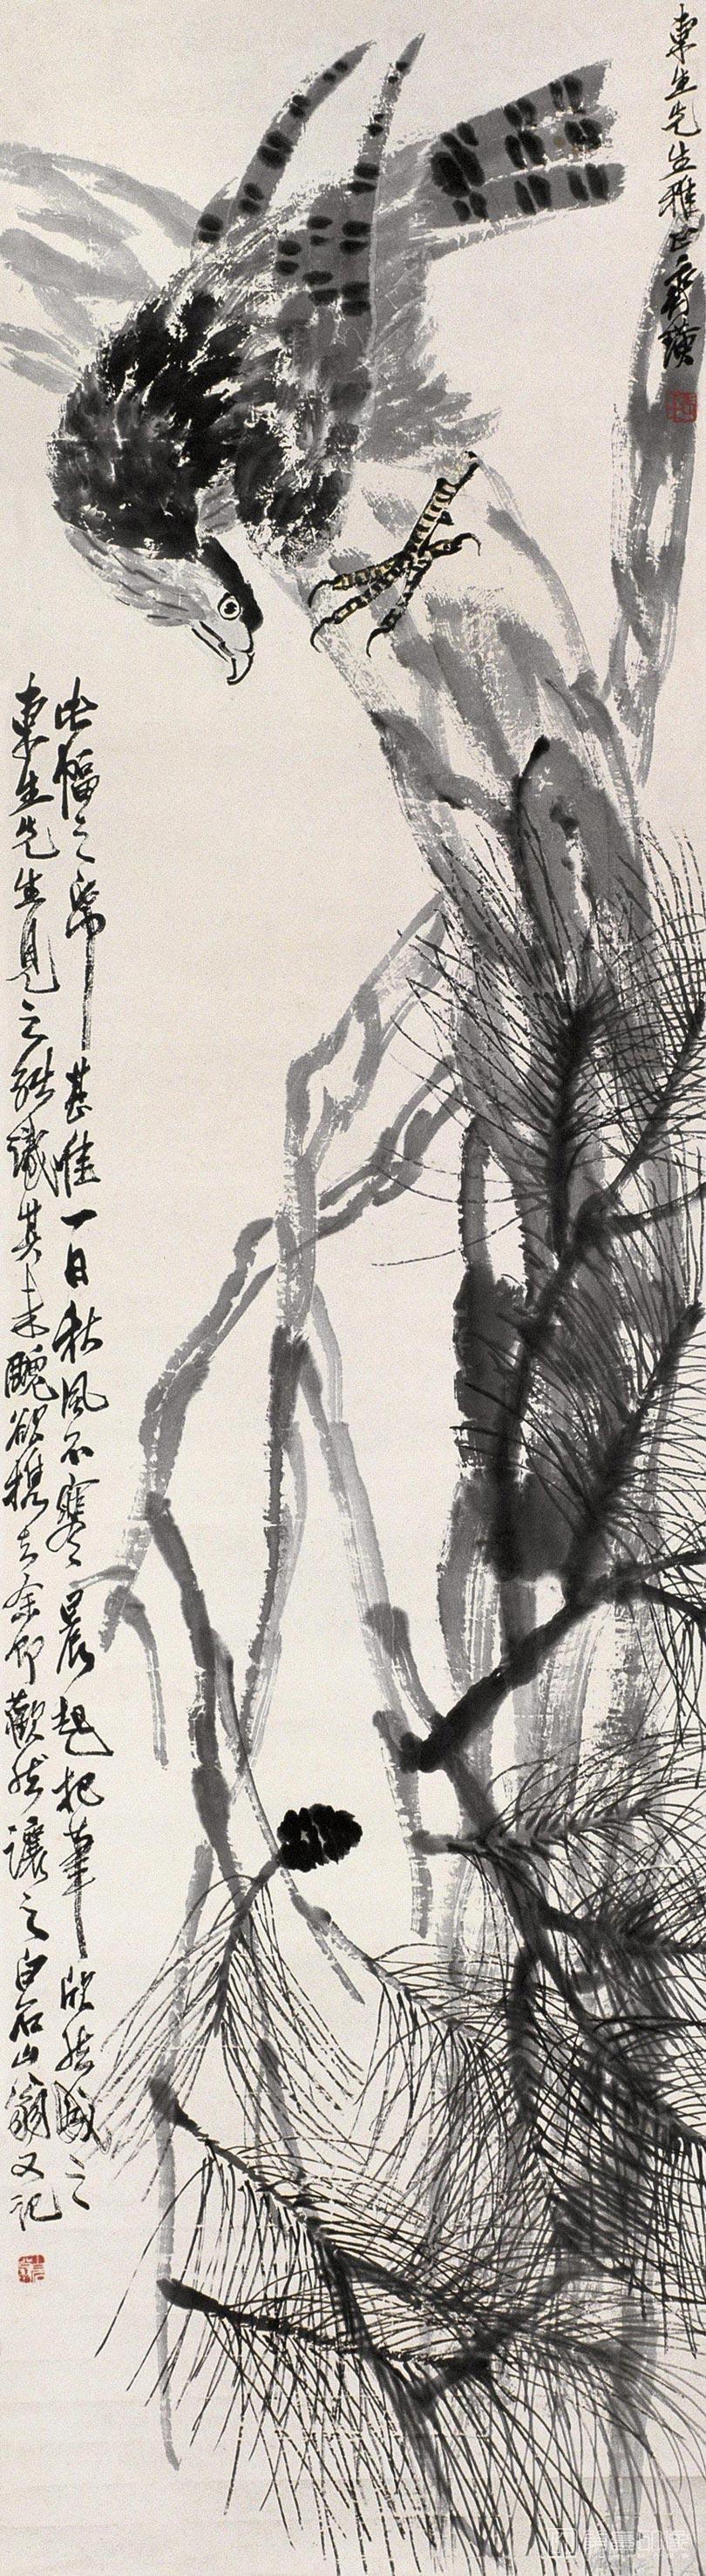 東生先生雅正齊璜
此幅之幂甚佳一日秋風不寒晨起把筆欣然成之
東生先生見之能識其未醜欲攜去余即歡然讓之白石山翁又記